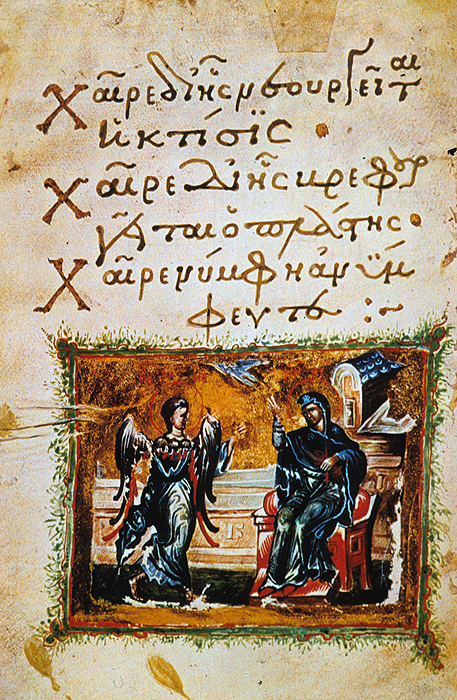 Χαῖρε δι ἧς νεουργεῖται
ἡ κτίσϊς ·
Χαῖρε δι ἧς βρεφουρ
γεῖται ὁ πλάστης ·
Χαῖρε νύμφη ἀνύμ
φευτε :~